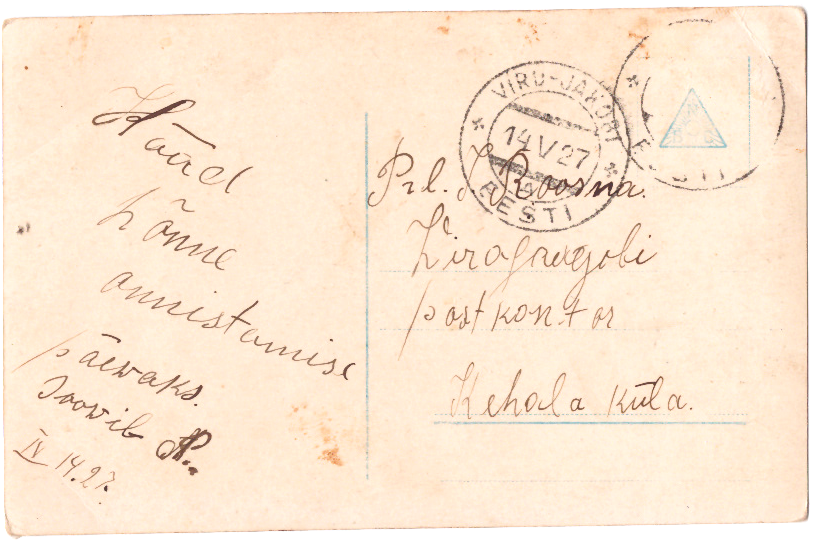 Hääd
hõnne
onnistamise
päewaks.
Soowib
IV 14.27.
VIRU-JAKOBI
14 V 27
EESTI
EESTI
Prl. J. Roosna.
Wirojaagobi
postkontor
Kehala küla.